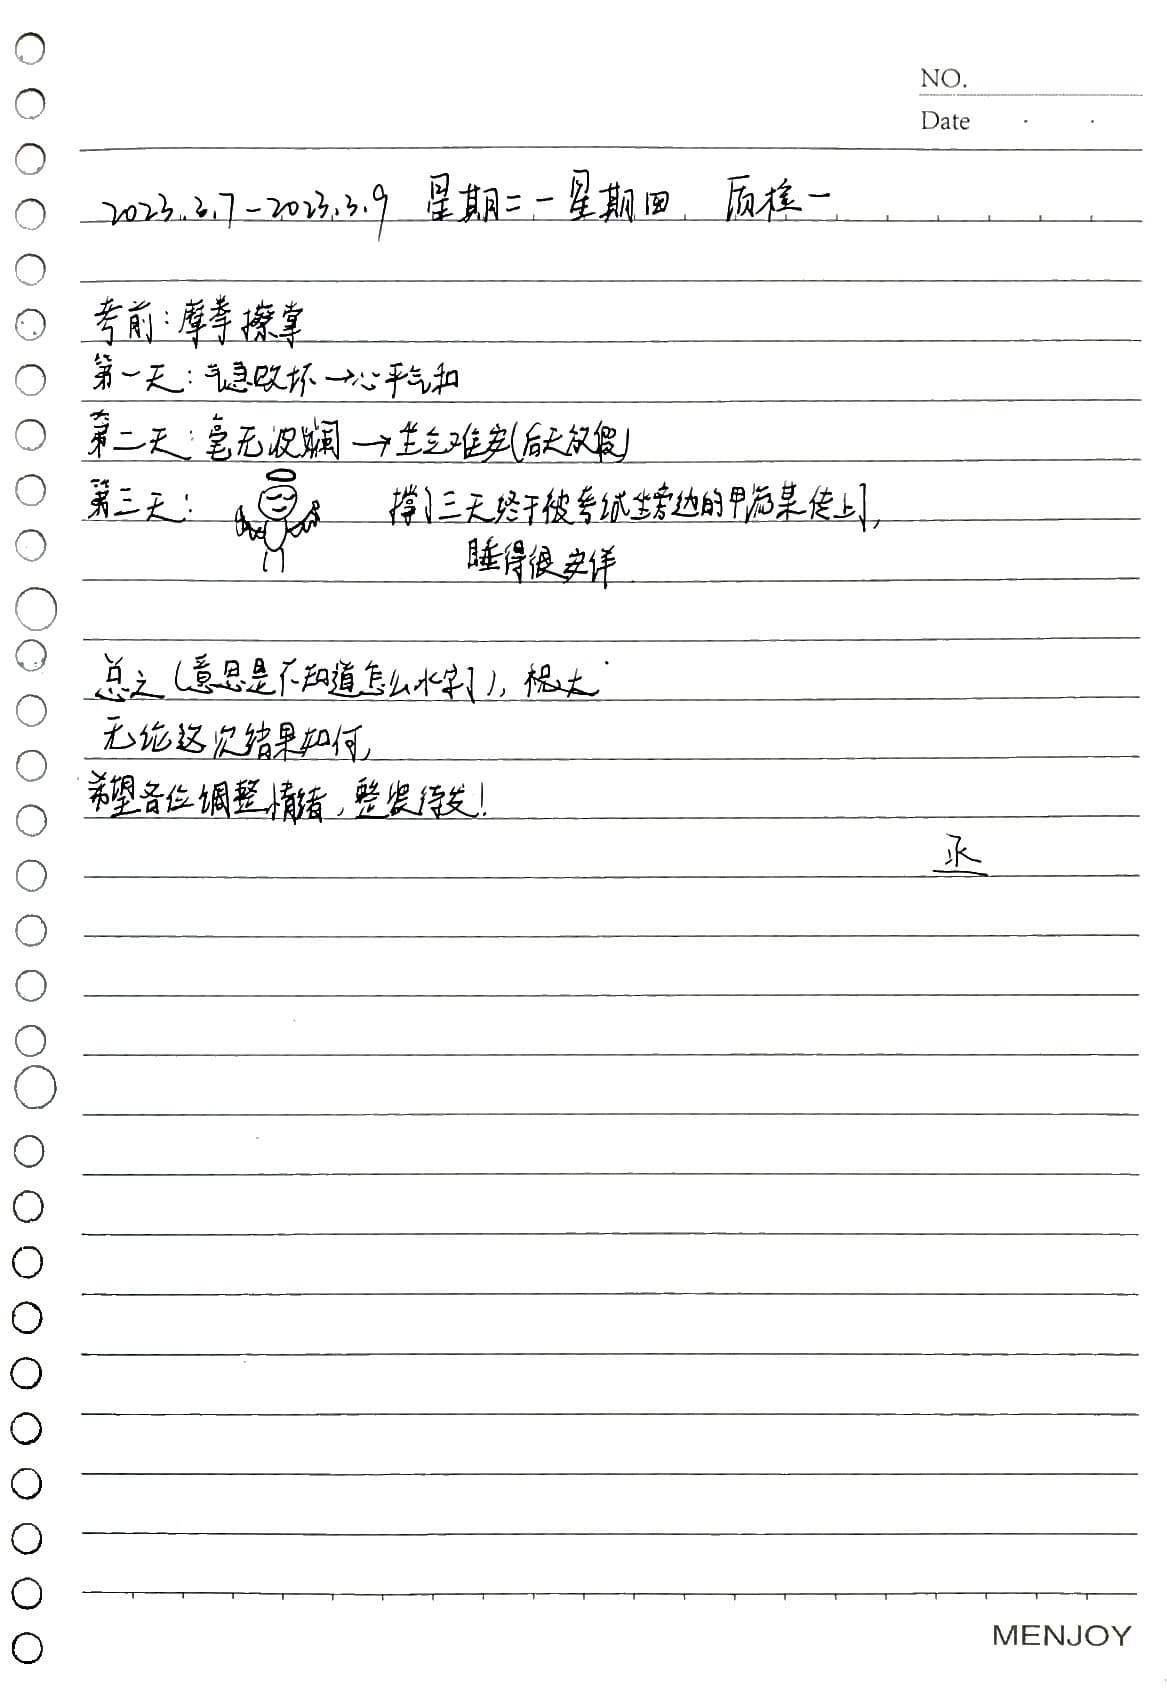 NO.
Date
2023.3.7-2023.3.9 星期二-星期四 质检一
考前:摩拳擦掌
第一天:气急败坏→心平气和
第二天:毫无波澜→坐立难安(后天放假)
第三天: 撑了三天终于被考试坐旁边的甲流某传上了,
睡得很安详
总之(意思是不知道怎么水字了),
无论这次结果如何,
希望各位调整情绪,整装待发!
丞
MENJOY